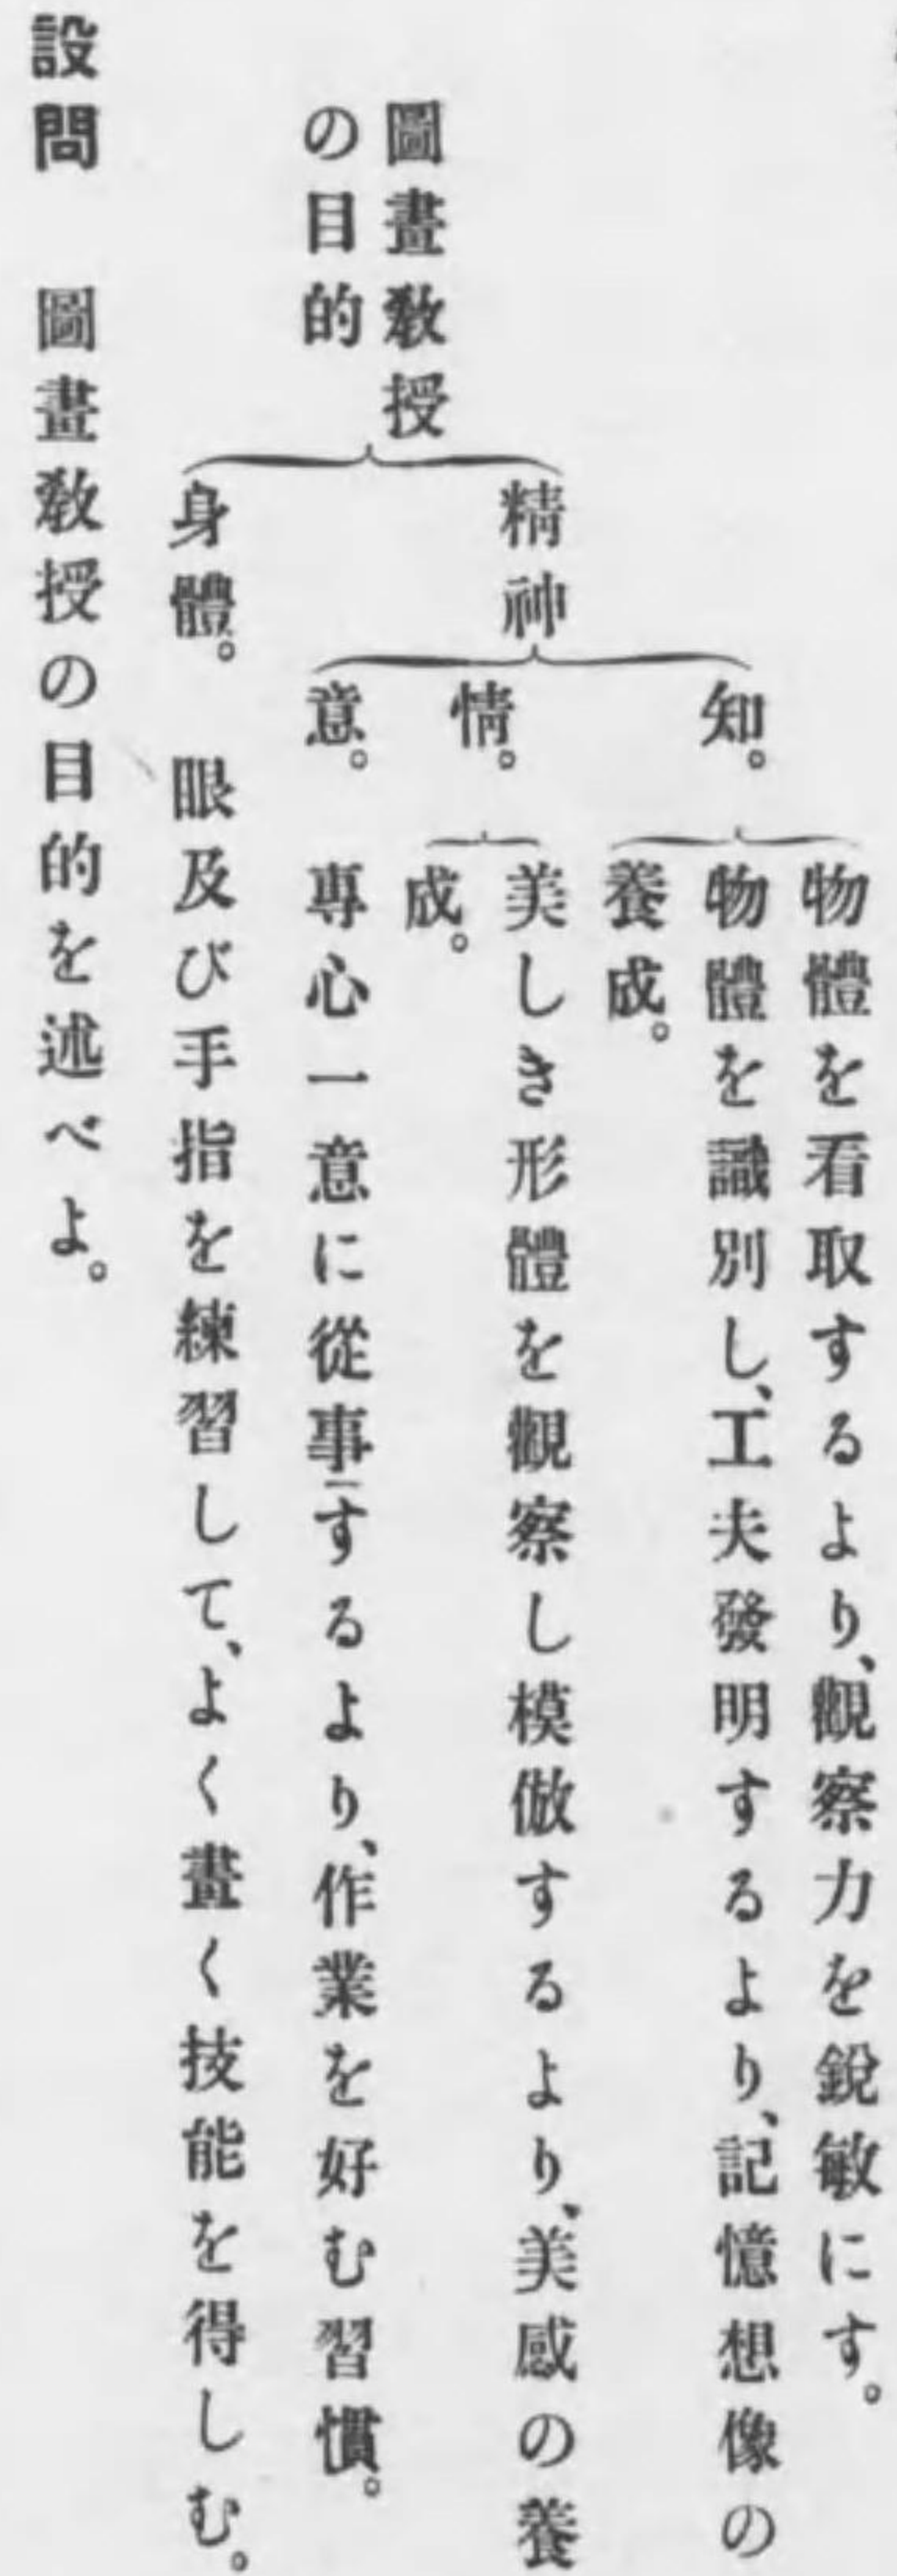 圖畫敎授
の目的
精神
知。
物體を看取するより、觀察力を銳敏にす。
物體を識別し、工夫發明するより、記憶想像の
養成。
情。
美しき形體を觀察し模倣するより、美感の養
成。
意。　專心一意に從事するより、作業を好む習慣。
身體。　眼及び手指を練習して、よく畫く技能を得しむ。
設問　圖畫敎授の目的を述べよ。